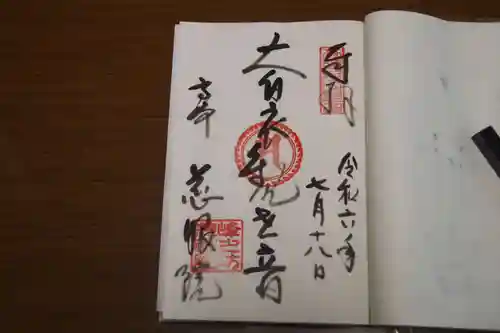 奉拝
令和六年
七月十八日
大白衣観世音
慈眼院